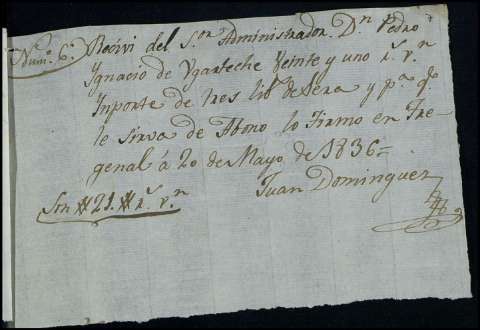 Num.º 6º Recivi del S.or Administrador D.n Pedro
Ygnacio de Ygarteche Veinte y uno r.s v.n
Ynporte de tres lib.s de Sera y p.a q.e
le sirva de Abono lo Firmo en Fre-
genal á 20 de Mayo de 1836=
Juan Dominguez
Son # 21 # r.s v.n